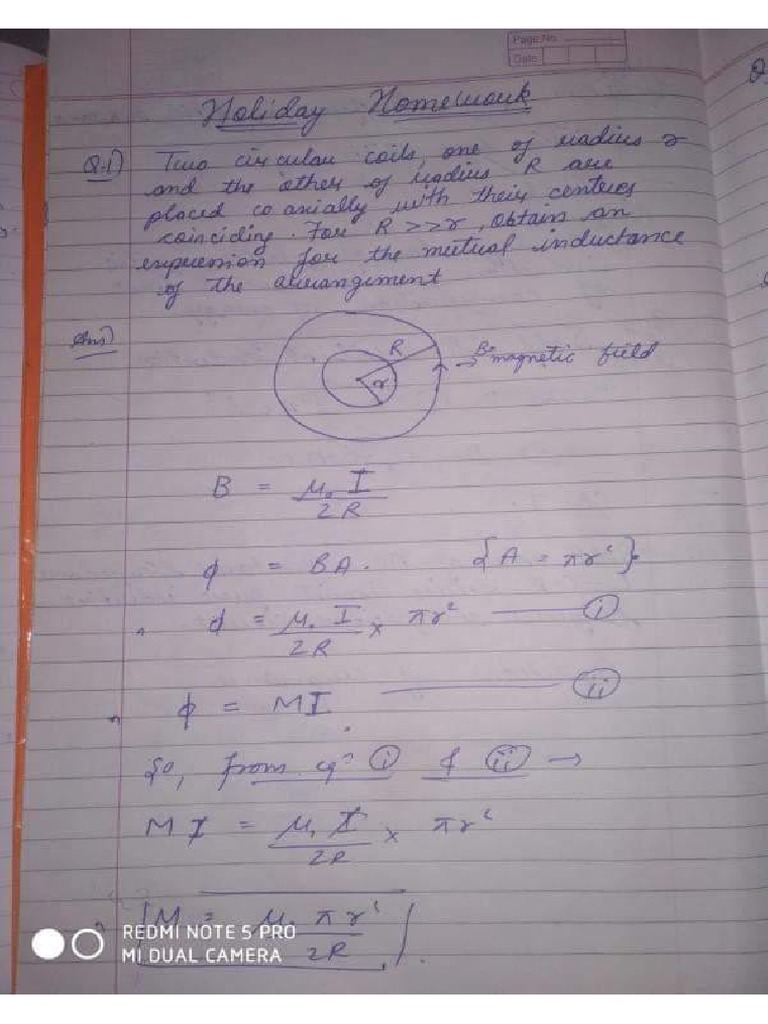 Page No.
Date
Holiday Homework
Q.1) Two circular coils, one of radius r
and the other of radius R are
placed coaxially with their centres
coinciding. For R >> r, obtain an
expression for the mutual inductance
of the arrangement
Ans)
R
r
→ magnetic field
B = μ₀ I / 2R
ϕ = BA. {A = πr²}
ϕ = μ₀ I / 2R × πr² — (i)
ϕ = MI — (ii)
So, from eqⁿ (i) & (ii) →
MI = μ₀ I / 2R × πr²
M = μ₀ πr² / 2R
REDMI NOTE 5 PRO
MI DUAL CAMERA